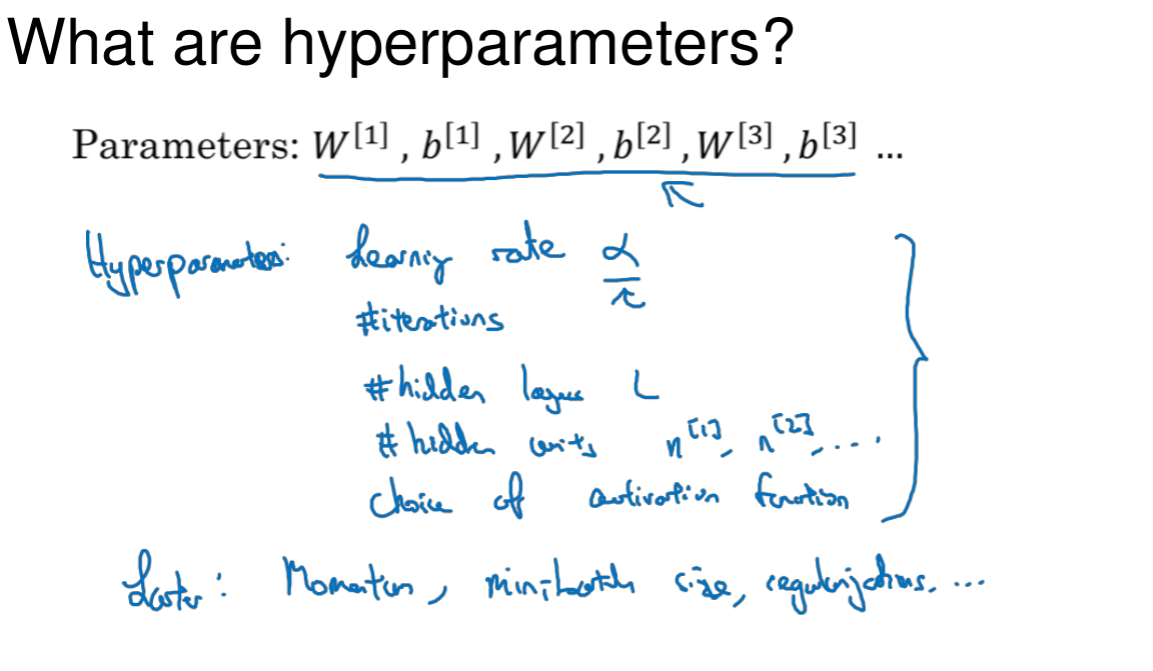 What are hyperparameters?
Parameters: W[1] , b[1] , W[2] , b[2] , W[3] , b[3] ...
Hyperparameters: Learning rate α
#iterations
#hidden layers L
# hidden units n[1], n[2], ....
Choice of activation function
Later: Momentum, mini-batch size, regularizations, ...